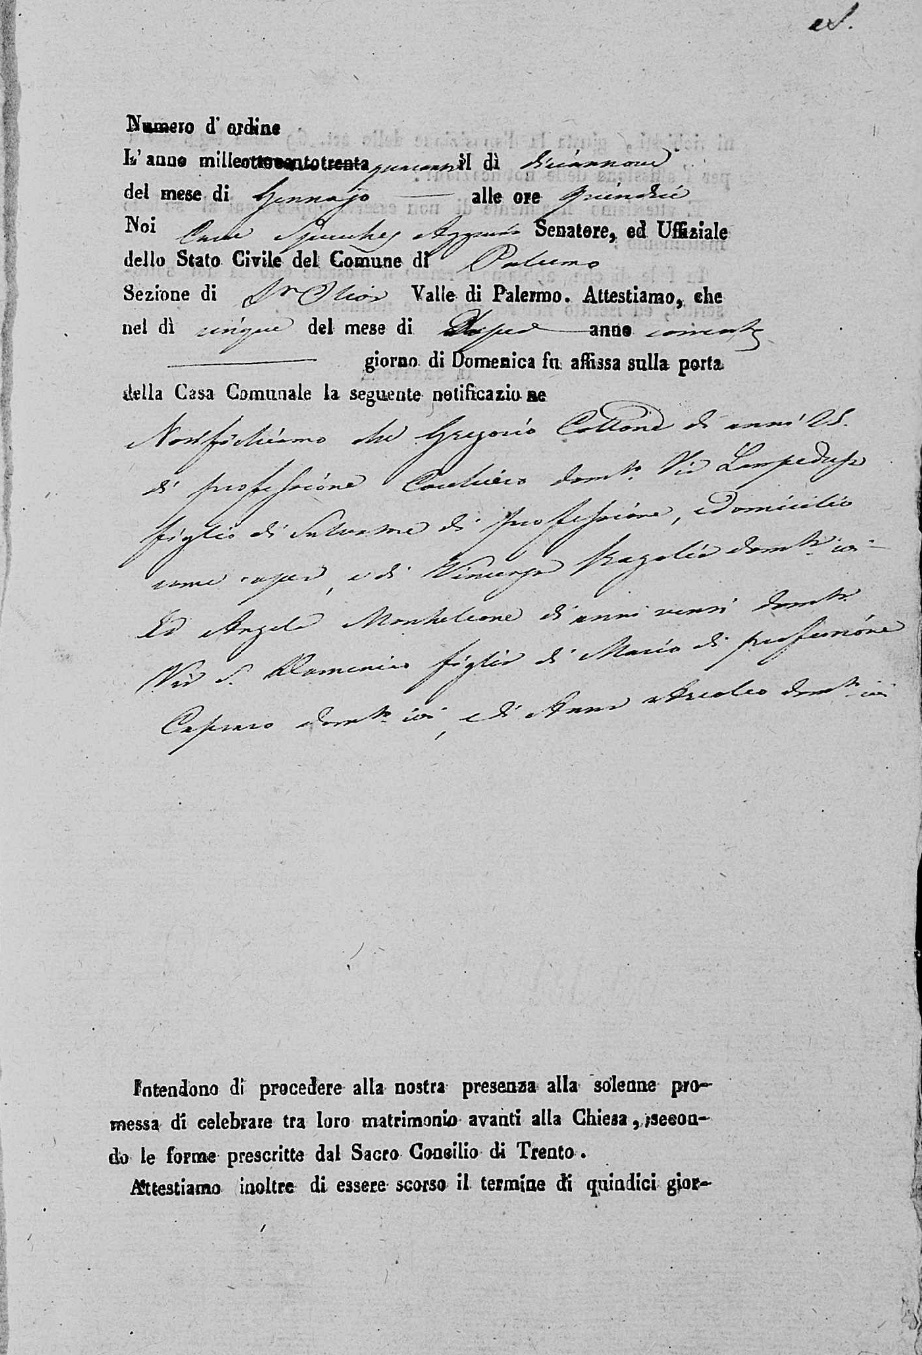 Numero d' ordine
L' anno milleottocentotrenta il dì diciannove
del mese di Gennajo alle ore quindici
Noi Senatore, ed Uffiziale
dello Stato Civile del Comune di Palermo
Sezione di Valle di Palermo. Attestiamo, che
nel dì cinque del mese di anno corrente
giorno di Domenica fu affissa sulla porta
della Casa Comunale la seguente notificazione
Notifichiamo che Gregorio Cottone di anni 28.
di professione Cocchiero domto. Via Lampedusa
figlio di Salvatore di professione, e domicilio
come sopra, e di Vincenza Ragalia domta. ivi
Ed Angela Monteleone di anni venti domta.
Via S. Domenico figlia di Mario di professione
Capraro domto. ivi, e di Anna domta. ivi
Intendono di procedere alla nostra presenza alla solenne pro-
messa di celebrare tra loro matrimonio avanti alla Chiesa, secon-
do le forme prescritte dal Sacro Concilio di Trento.
Attestiamo inoltre di essere scorso il termine di quindici gior-